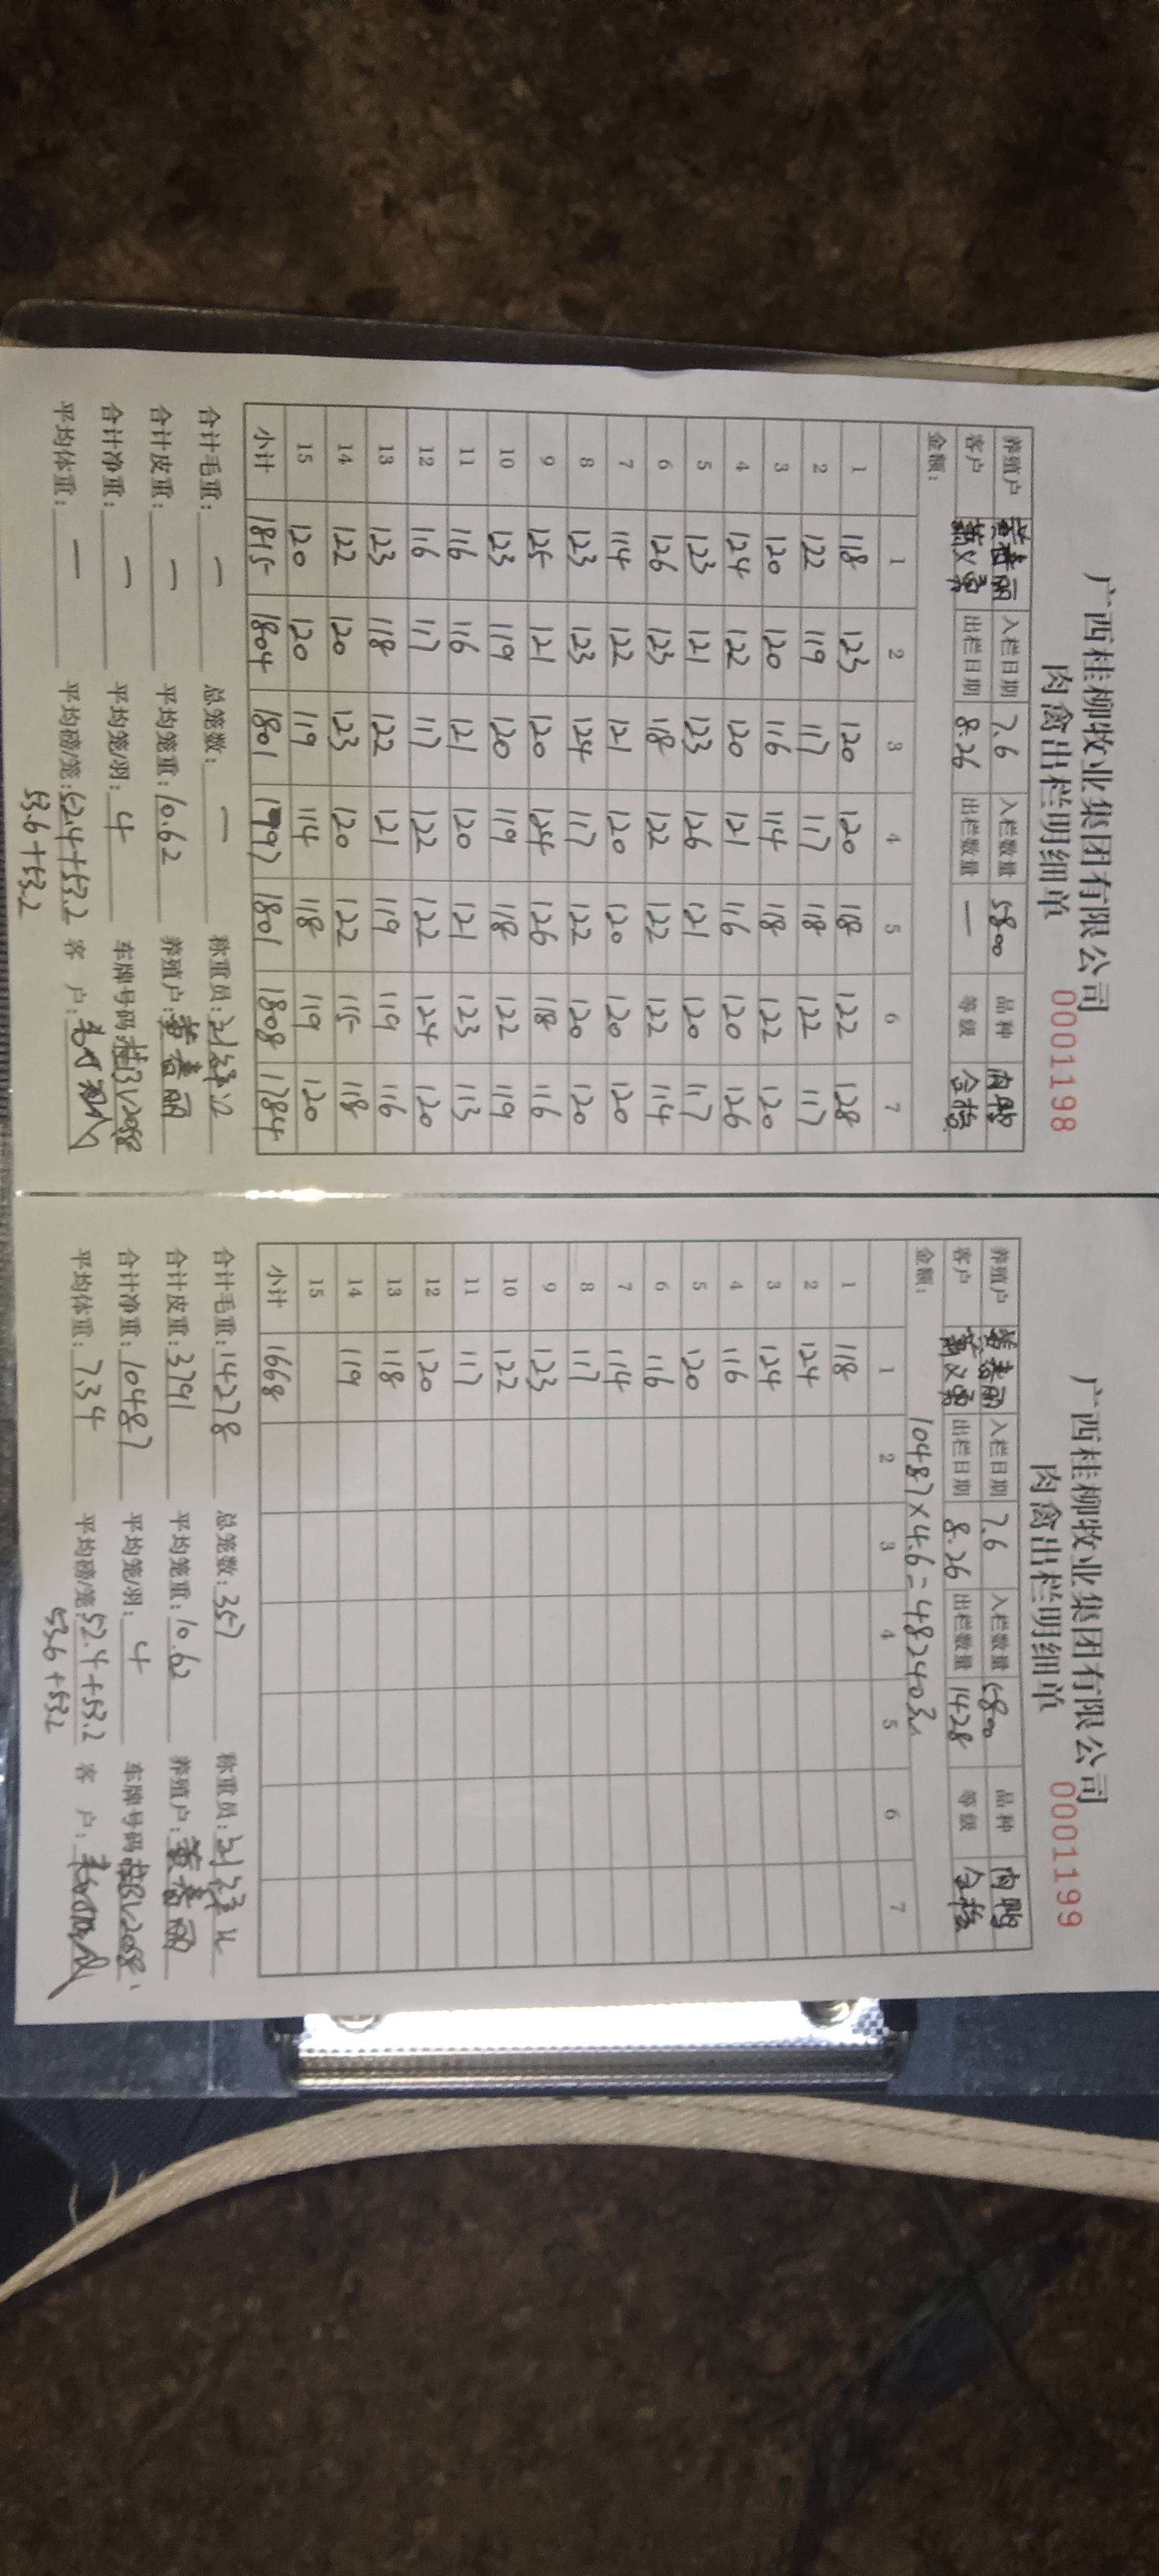 广西桂柳牧业集团有限公司
肉禽出栏明细单 0001198
养殖户 黄春丽 入栏日期 7.6 入栏数量 5800 品种 肉鸭
客户 出栏日期 8.26 出栏数量 — 等级 合格
金额:
1 2 3 4 5 6 7
1 118 123 120 120 118 122 128
2 122 119 117 117 118 122 117
3 120 120 116 114 118 122 120
4 124 122 120 121 116 120 126
5 123 121 123 126 121 120 117
6 126 123 118 122 122 122 114
7 114 122 121 120 120 120 120
8 123 123 124 117 122 120 120
9 125 121 120 124 126 118 116
10 123 119 120 119 118 122 119
11 116 116 121 120 121 123 113
12 116 117 117 122 122 124 120
13 123 118 122 121 119 119 116
14 122 120 123 120 122 115 118
15 120 120 119 114 118 119 120
小计 1815 1804 1801 1797 1801 1808 1784
合计毛重: — 总笼数: — 称重员:
合计皮重: — 平均笼重: 10.62 养殖户: 黄春丽
合计净重: — 平均笼/羽: 4 车牌号码:
平均体重: — 平均磅/笼: 52.4+53.2 客 户:
53.6+53.2
广西桂柳牧业集团有限公司
肉禽出栏明细单 0001199
养殖户 黄春丽 入栏日期 7.6 入栏数量 5800 品种 肉鸭
客户 出栏日期 8.26 出栏数量 1428 等级 合格
金额: 10487×4.6=48240元
1 2 3 4 5 6 7
1 118
2 124
3 124
4 116
5 120
6 116
7 114
8 117
9 123
10 122
11 117
12 120
13 118
14 119
15
小计 1668
合计毛重: 14278 总笼数: 357 称重员:
合计皮重: 3791 平均笼重: 10.62 养殖户: 黄春丽
合计净重: 10487 平均笼/羽: 4 车牌号码:
平均体重: 7.34 平均磅/笼: 52.4+53.2 客 户:
53.6+53.2